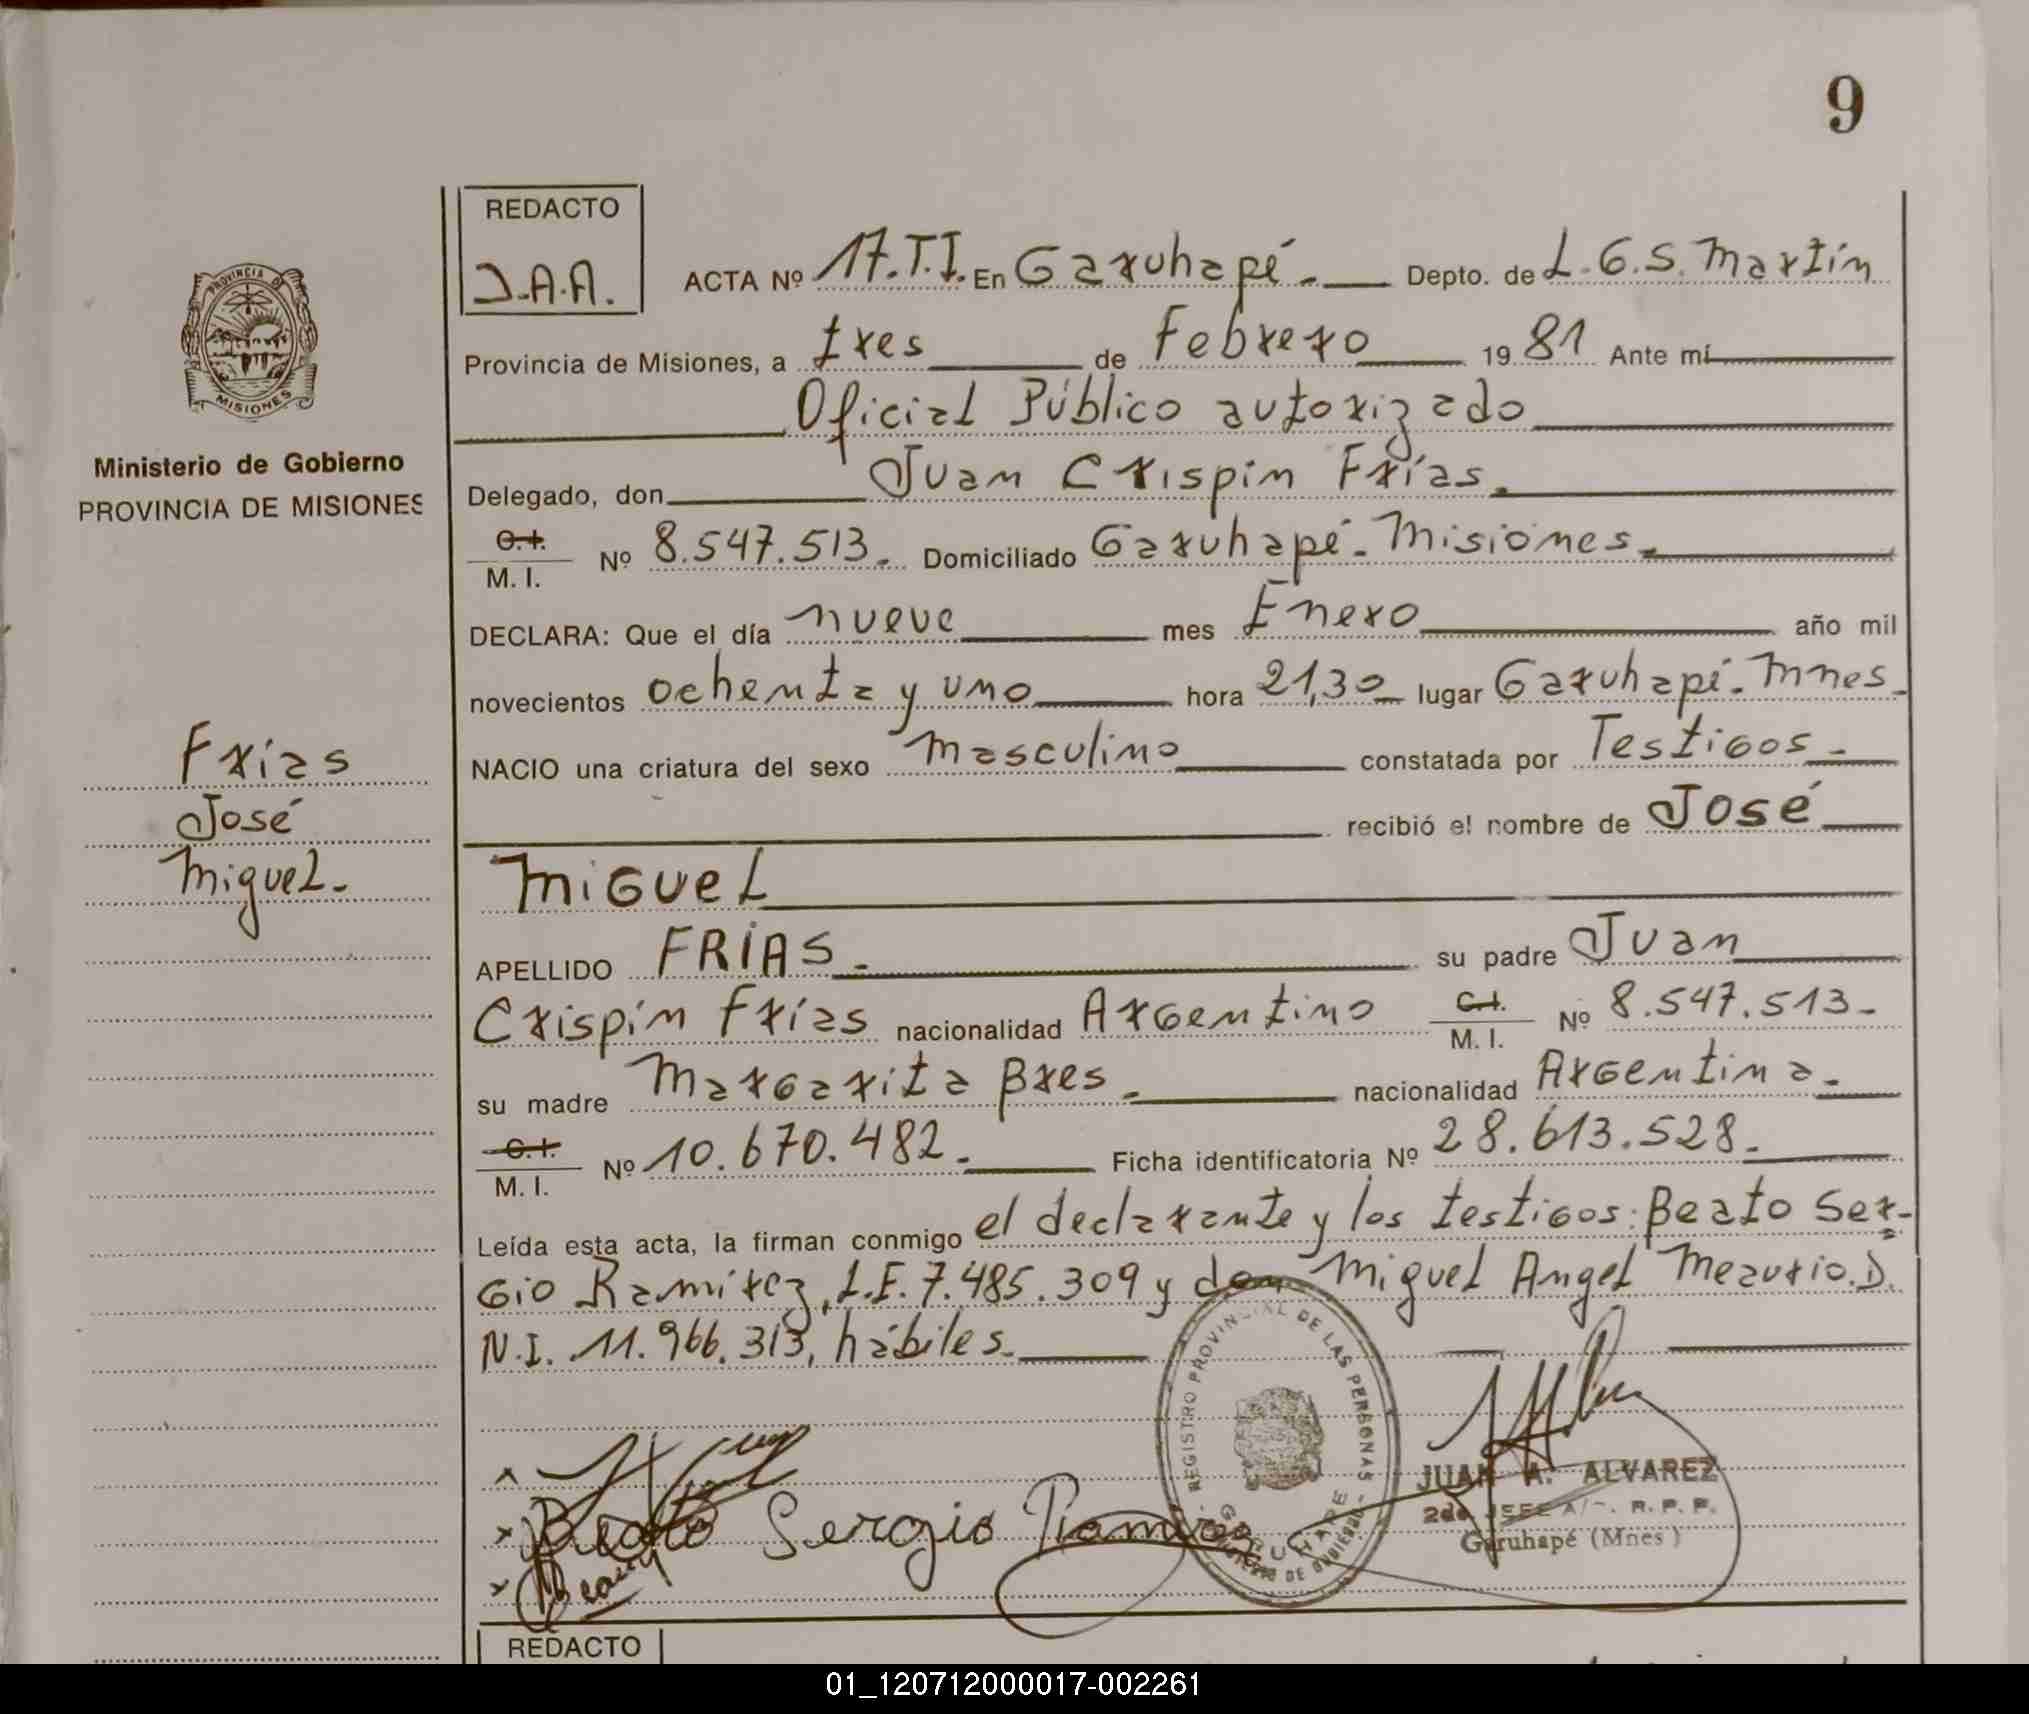 9
REDACTO
J.A.A.
ACTA Nº 17.T.I. En Garuhapé.- Depto. de L.G.S. Martín
Provincia de Misiones, a tres de Febrero 19 81 Ante mí
Oficial Público autorizado
Delegado, don Juan Crispín Frías.
C.I. M.I. Nº 8.547.513. Domiciliado Garuhapé-Misiones.
DECLARA: Que el día nueve mes Enero año mil
novecientos ochenta y uno hora 21,30 lugar Garuhapé-Mnes.
NACIO una criatura del sexo masculino constatada por Testigos-
recibió el nombre de José
MIGUEL
APELLIDO FRÍAS.- su padre Juan
Crispín Frías nacionalidad Argentino C.I. M.I. Nº 8.547.513-
su madre Margarita Bres.- nacionalidad Argentina.-
C.I. M.I. Nº 10.670.482.- Ficha identificatoria Nº 28.613.528.-
Leída esta acta, la firman conmigo el declarante y los testigos: Beato Ser-
gio Ramírez, L.E. 7.485.309 y don Miguel Angel Mezurio. D.
N.I. 11.966.313, hábiles.-
PROVINCIA DE
MISIONES
Ministerio de Gobierno
PROVINCIA DE MISIONES
Frías
José
Miguel-
REGISTRO PROVINCIAL DE LAS PERSONAS
GARUHAPE
MINISTERIO DE GOBIERNO
Beato Sergio Ramirez
JUAN A. ALVAREZ
2do JEFE R. P. P.
Garuhapé (Mnes)
REDACTO
01_120712000017-002261